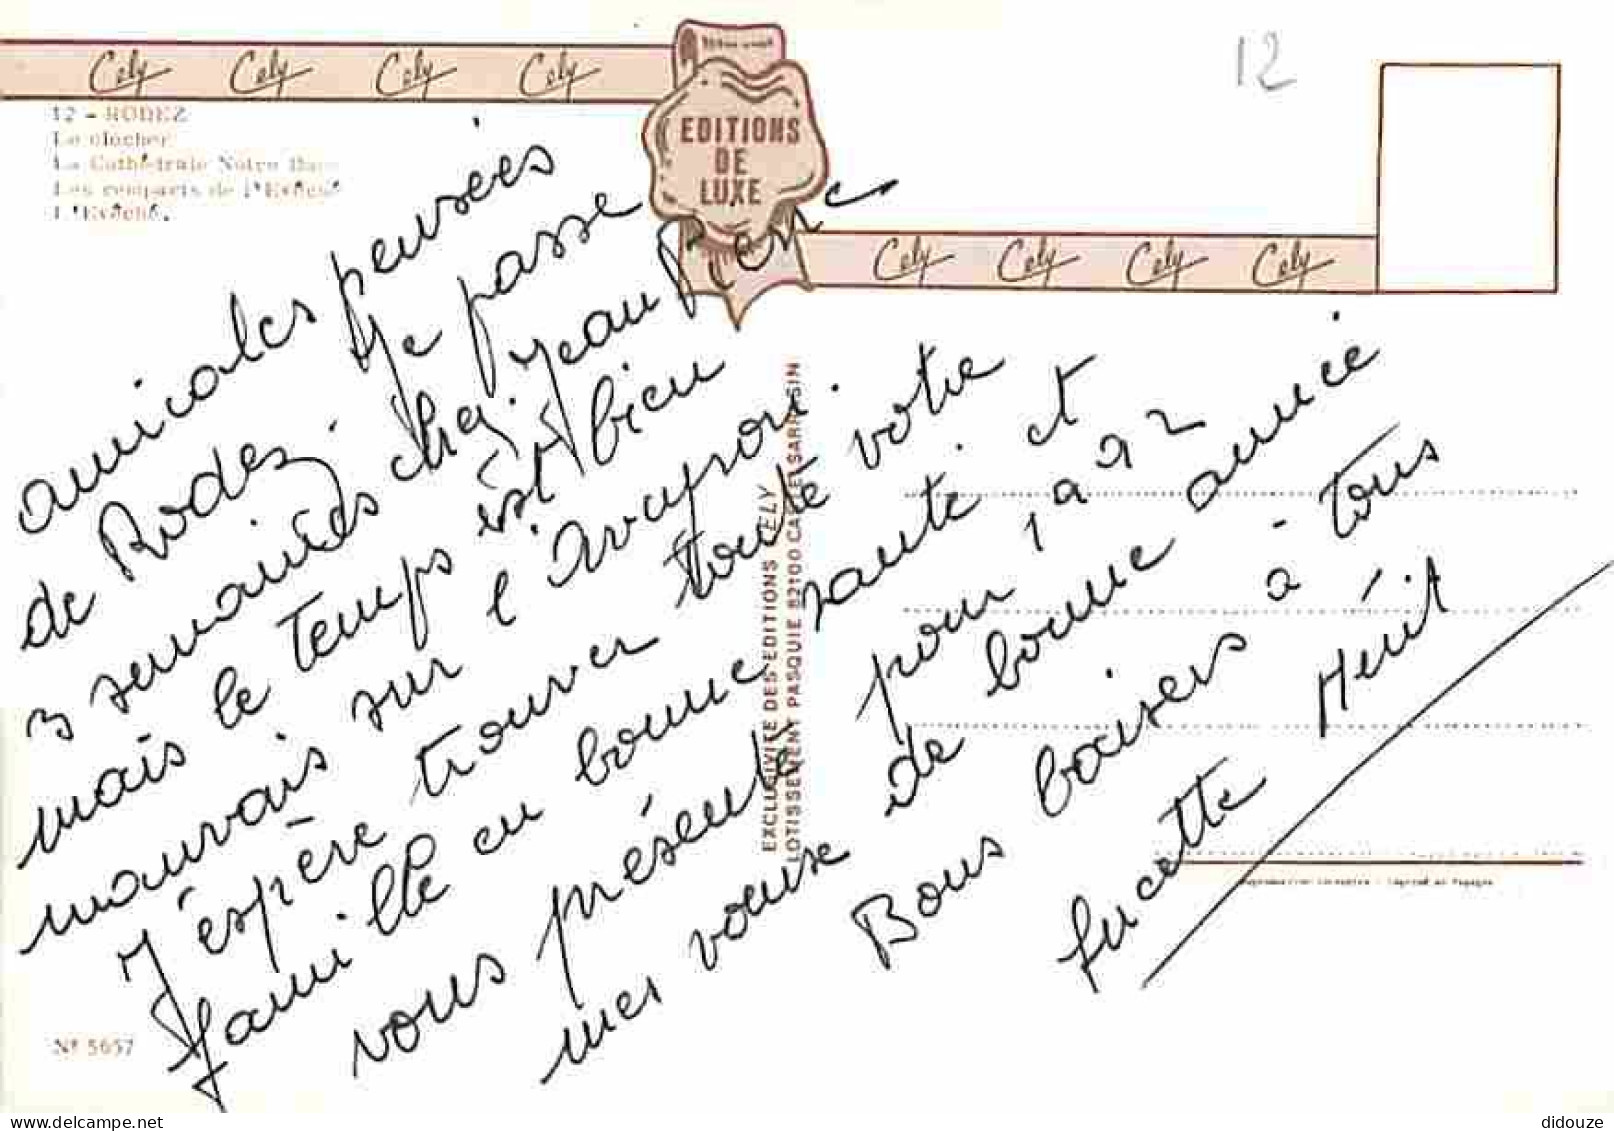 Cely Cely Cely Cely
12
12 - RODEZ
Le clocher
La Cathédrale Notre Dame
Les remparts de l'Evêché
L'Evêché.
EDITIONS
DE
LUXE
Cely Cely Cely Cely
amicales pensées
de Rodez. Je passe
3 semaines chez Jean Pierre
mais le temps est bien
mauvais sur l'Aveyron.
J'espère trouver toute votre
famille en bonne santé et
vous présente pour 1992
mes voeux de bonne année
Bons baisers à tous
Lucette Hérit
EXCLUSIVITE DES EDITIONS CELY
LOTISSEMENT PASQUIE 82100 CASTELSARRASIN
Nº 5657
didouze